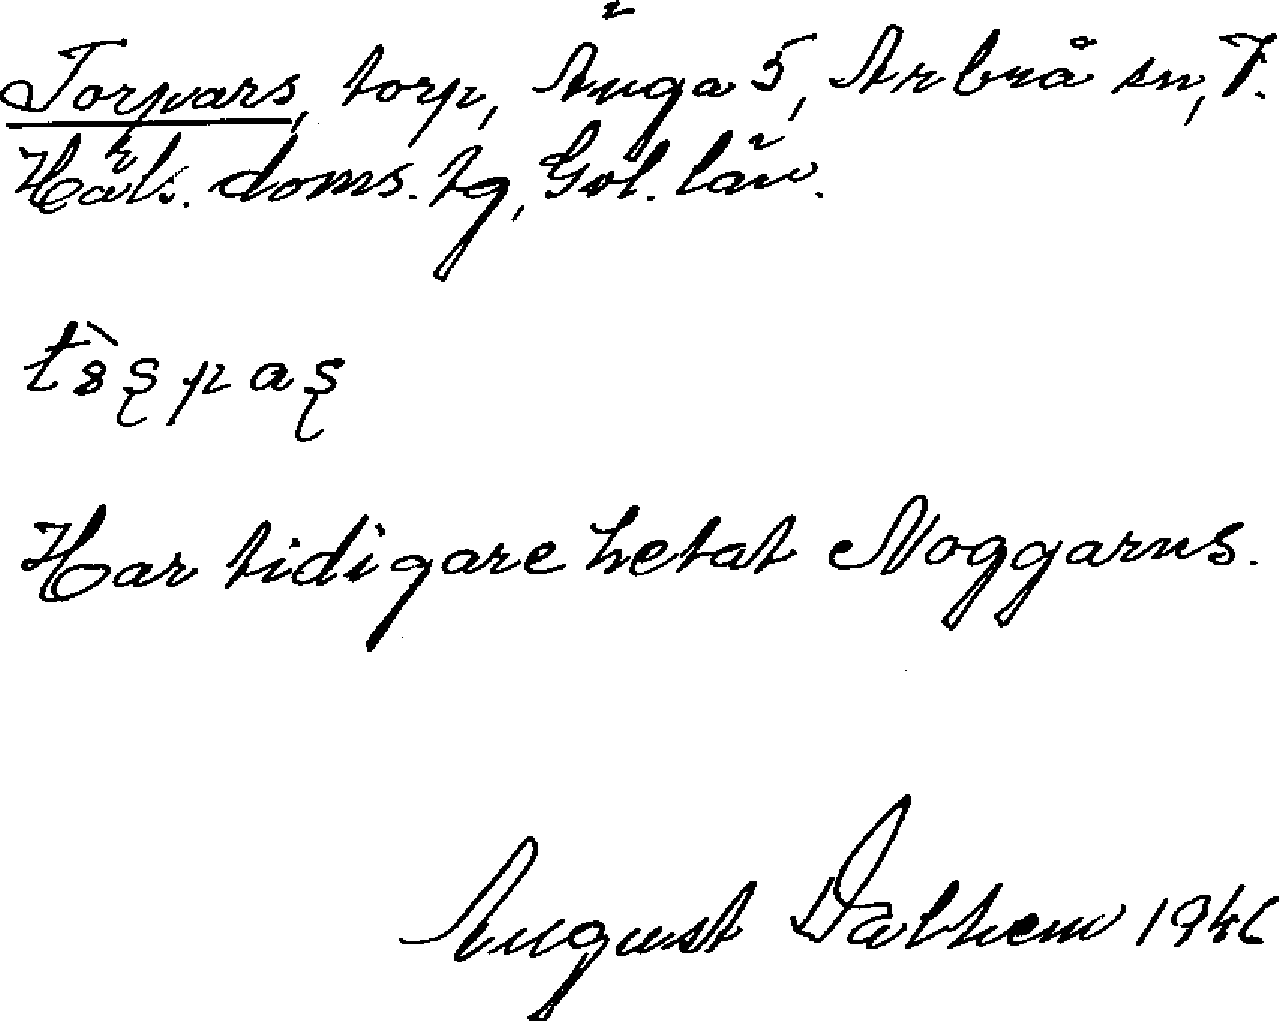 Torpars, torp, Änga 5, Arbrå sn, V.
Häls. doms. tg, Gvl. län.
Har tidigare hetat Noggarns.
August Dalhem 1946